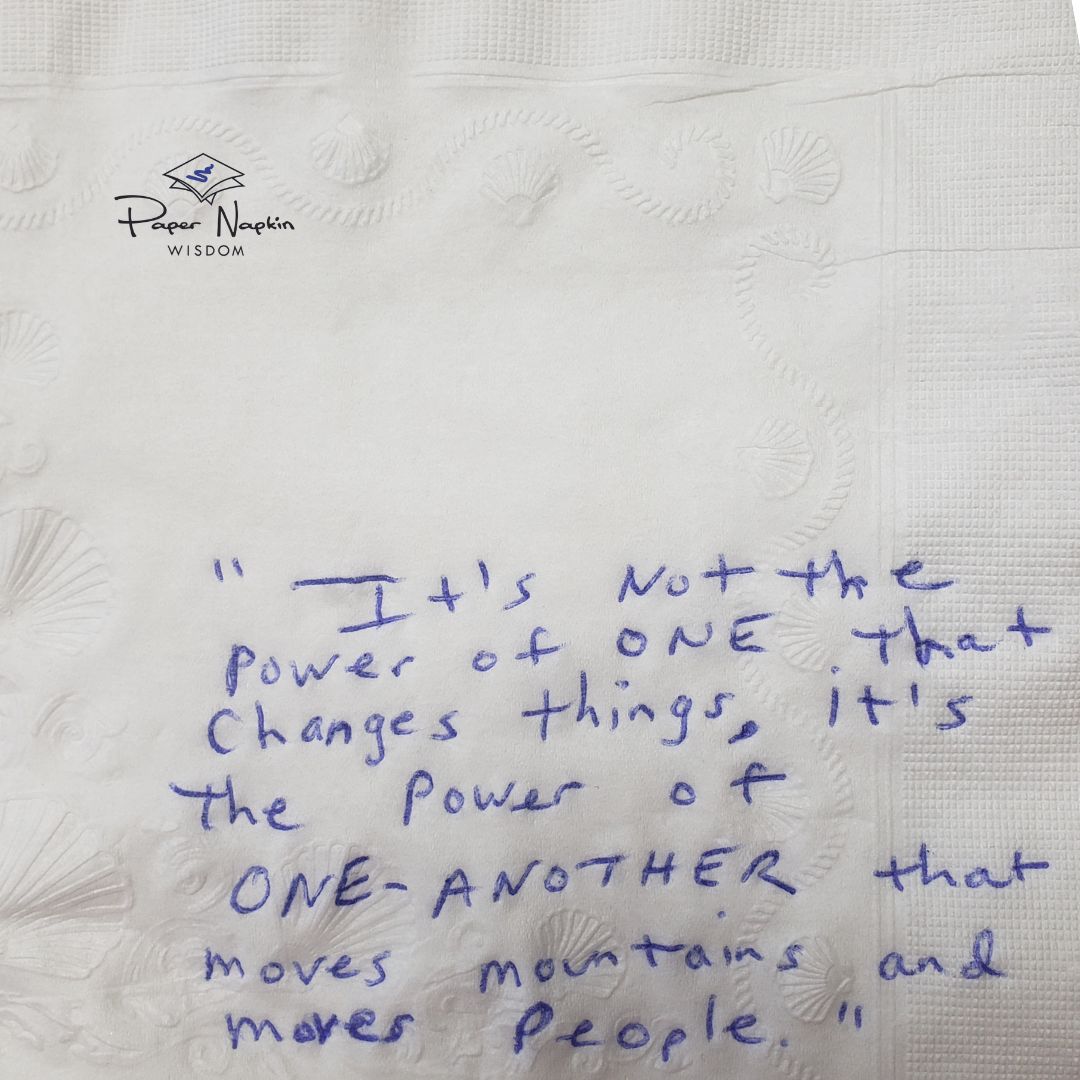 Paper Napkin
WISDOM
" It's Not the
Power of ONE that
Changes things, it's
The Power of
ONE-ANOTHER that
moves mountains and
moves People."